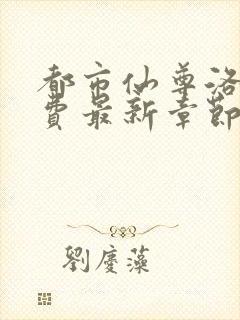 都市仙尊洛
費最新章節
劉慶藻